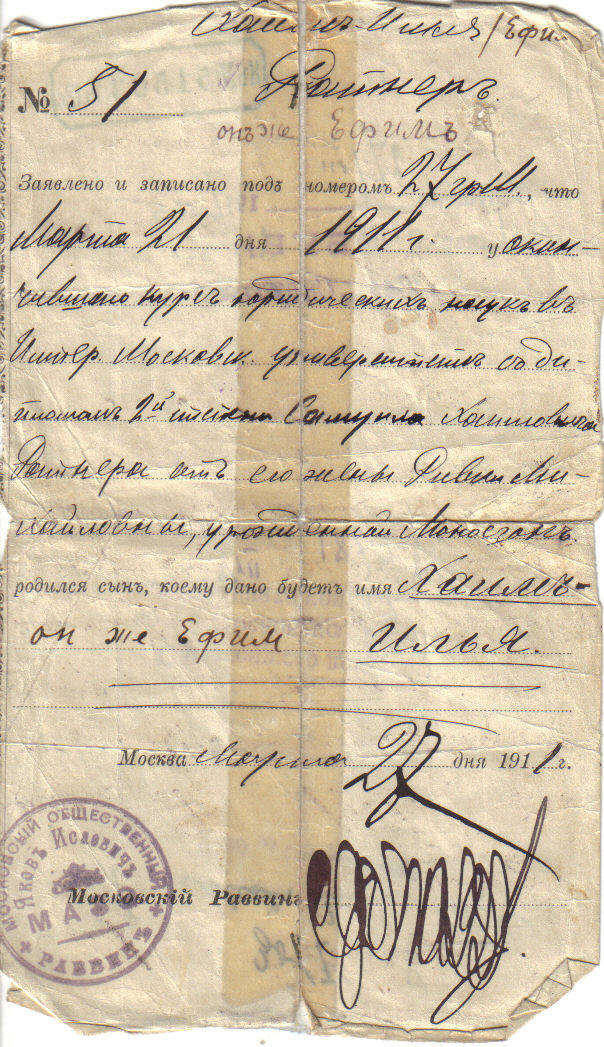 Хаимъ-Илья/Ефим
Ратнеръ.
№ 51
онъ же Ефимъ
Заявлено и записано подъ номеромъ 27 грМ, что
Марта 21 дня 1911 г. у окан-
чившаго курсъ юридическихъ наукъ въ
Импер. Московск. университетѣ съ ди-
пломомъ 2й степени Самуила Хаимовича
Ратнера отъ его жены Ривки Ми-
хайловны, урожденной
родился сынъ, коему дано будетъ имя Хаимъ-
он же Ефим Илья.
Москва Марта 27 дня 1911 г.
Московскій Раввинъ
МОСКОВСКІЙ ОБЩЕСТВЕННЫЙ
РАВВИНЪ
Яковъ Исаевичъ
МАЗЭ